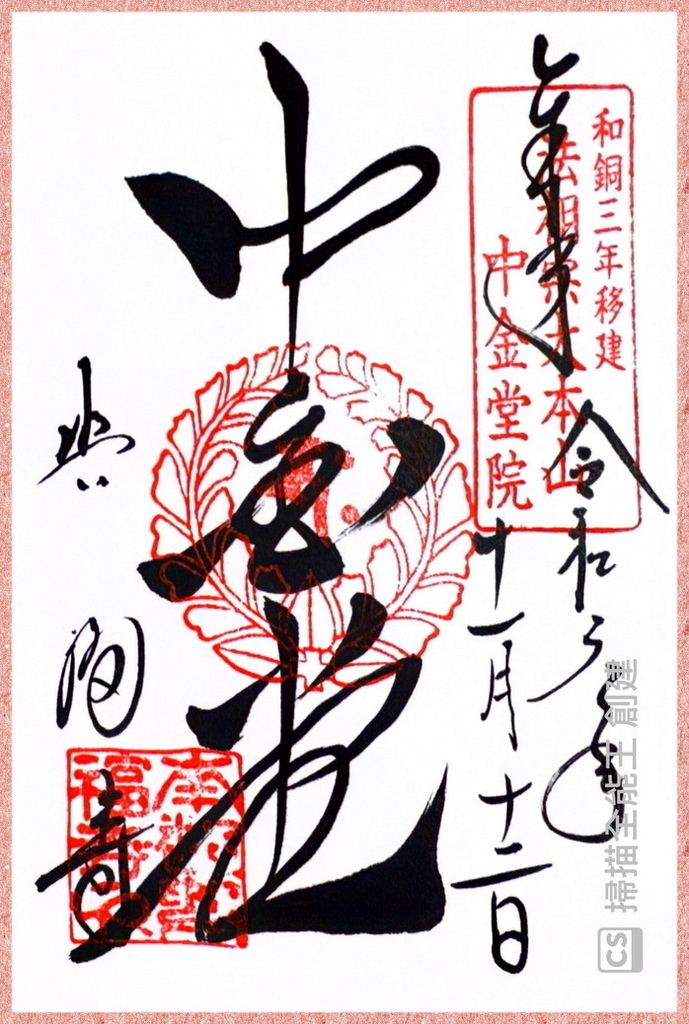 奉拝
和銅三年移建
法相宗大本山
中金堂院
令和
十一月十二日
中金堂
興
福
寺
掃描全能王 創建
CS